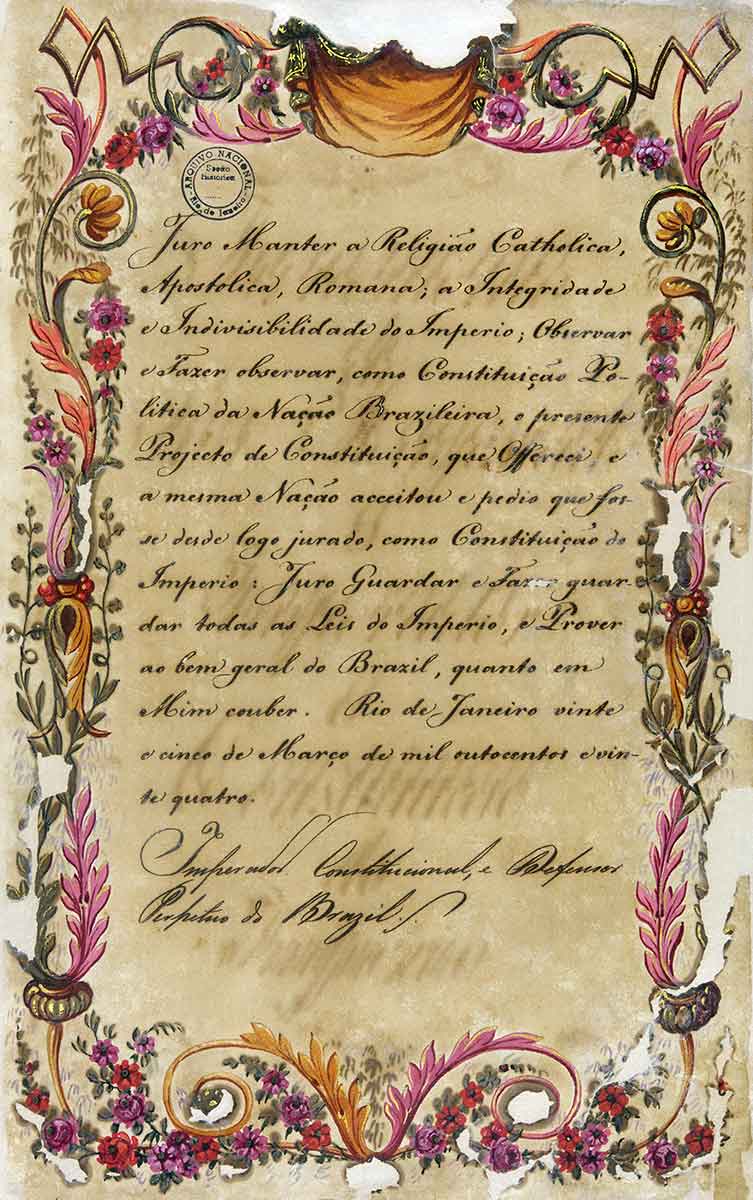 ARQUIVO NACIONAL
Secção
historica
Rio de Janeiro
Juro Manter a Religião Catholica,
Apostolica, Romana; a Integridade
e Indivisibilidade do Imperio; Observar
e Fazer observar, como Constituição Po-
litica da Nação Brazileira, o presente
Projecto de Constituição, que Offereci, e
a mesma Nação acceitou e pedio que fos-
se desde logo jurado, como Constituição do
Imperio: Juro Guardar e Fazer guar-
dar todas as Leis do Imperio, e Prover
ao bem geral do Brazil, quanto em
Mim couber. Rio de Janeiro vinte
e cinco de Março de mil outocentos e vin-
te quatro.
Imperador Constitucional, e Defensor
Perpetuo do Brazil.